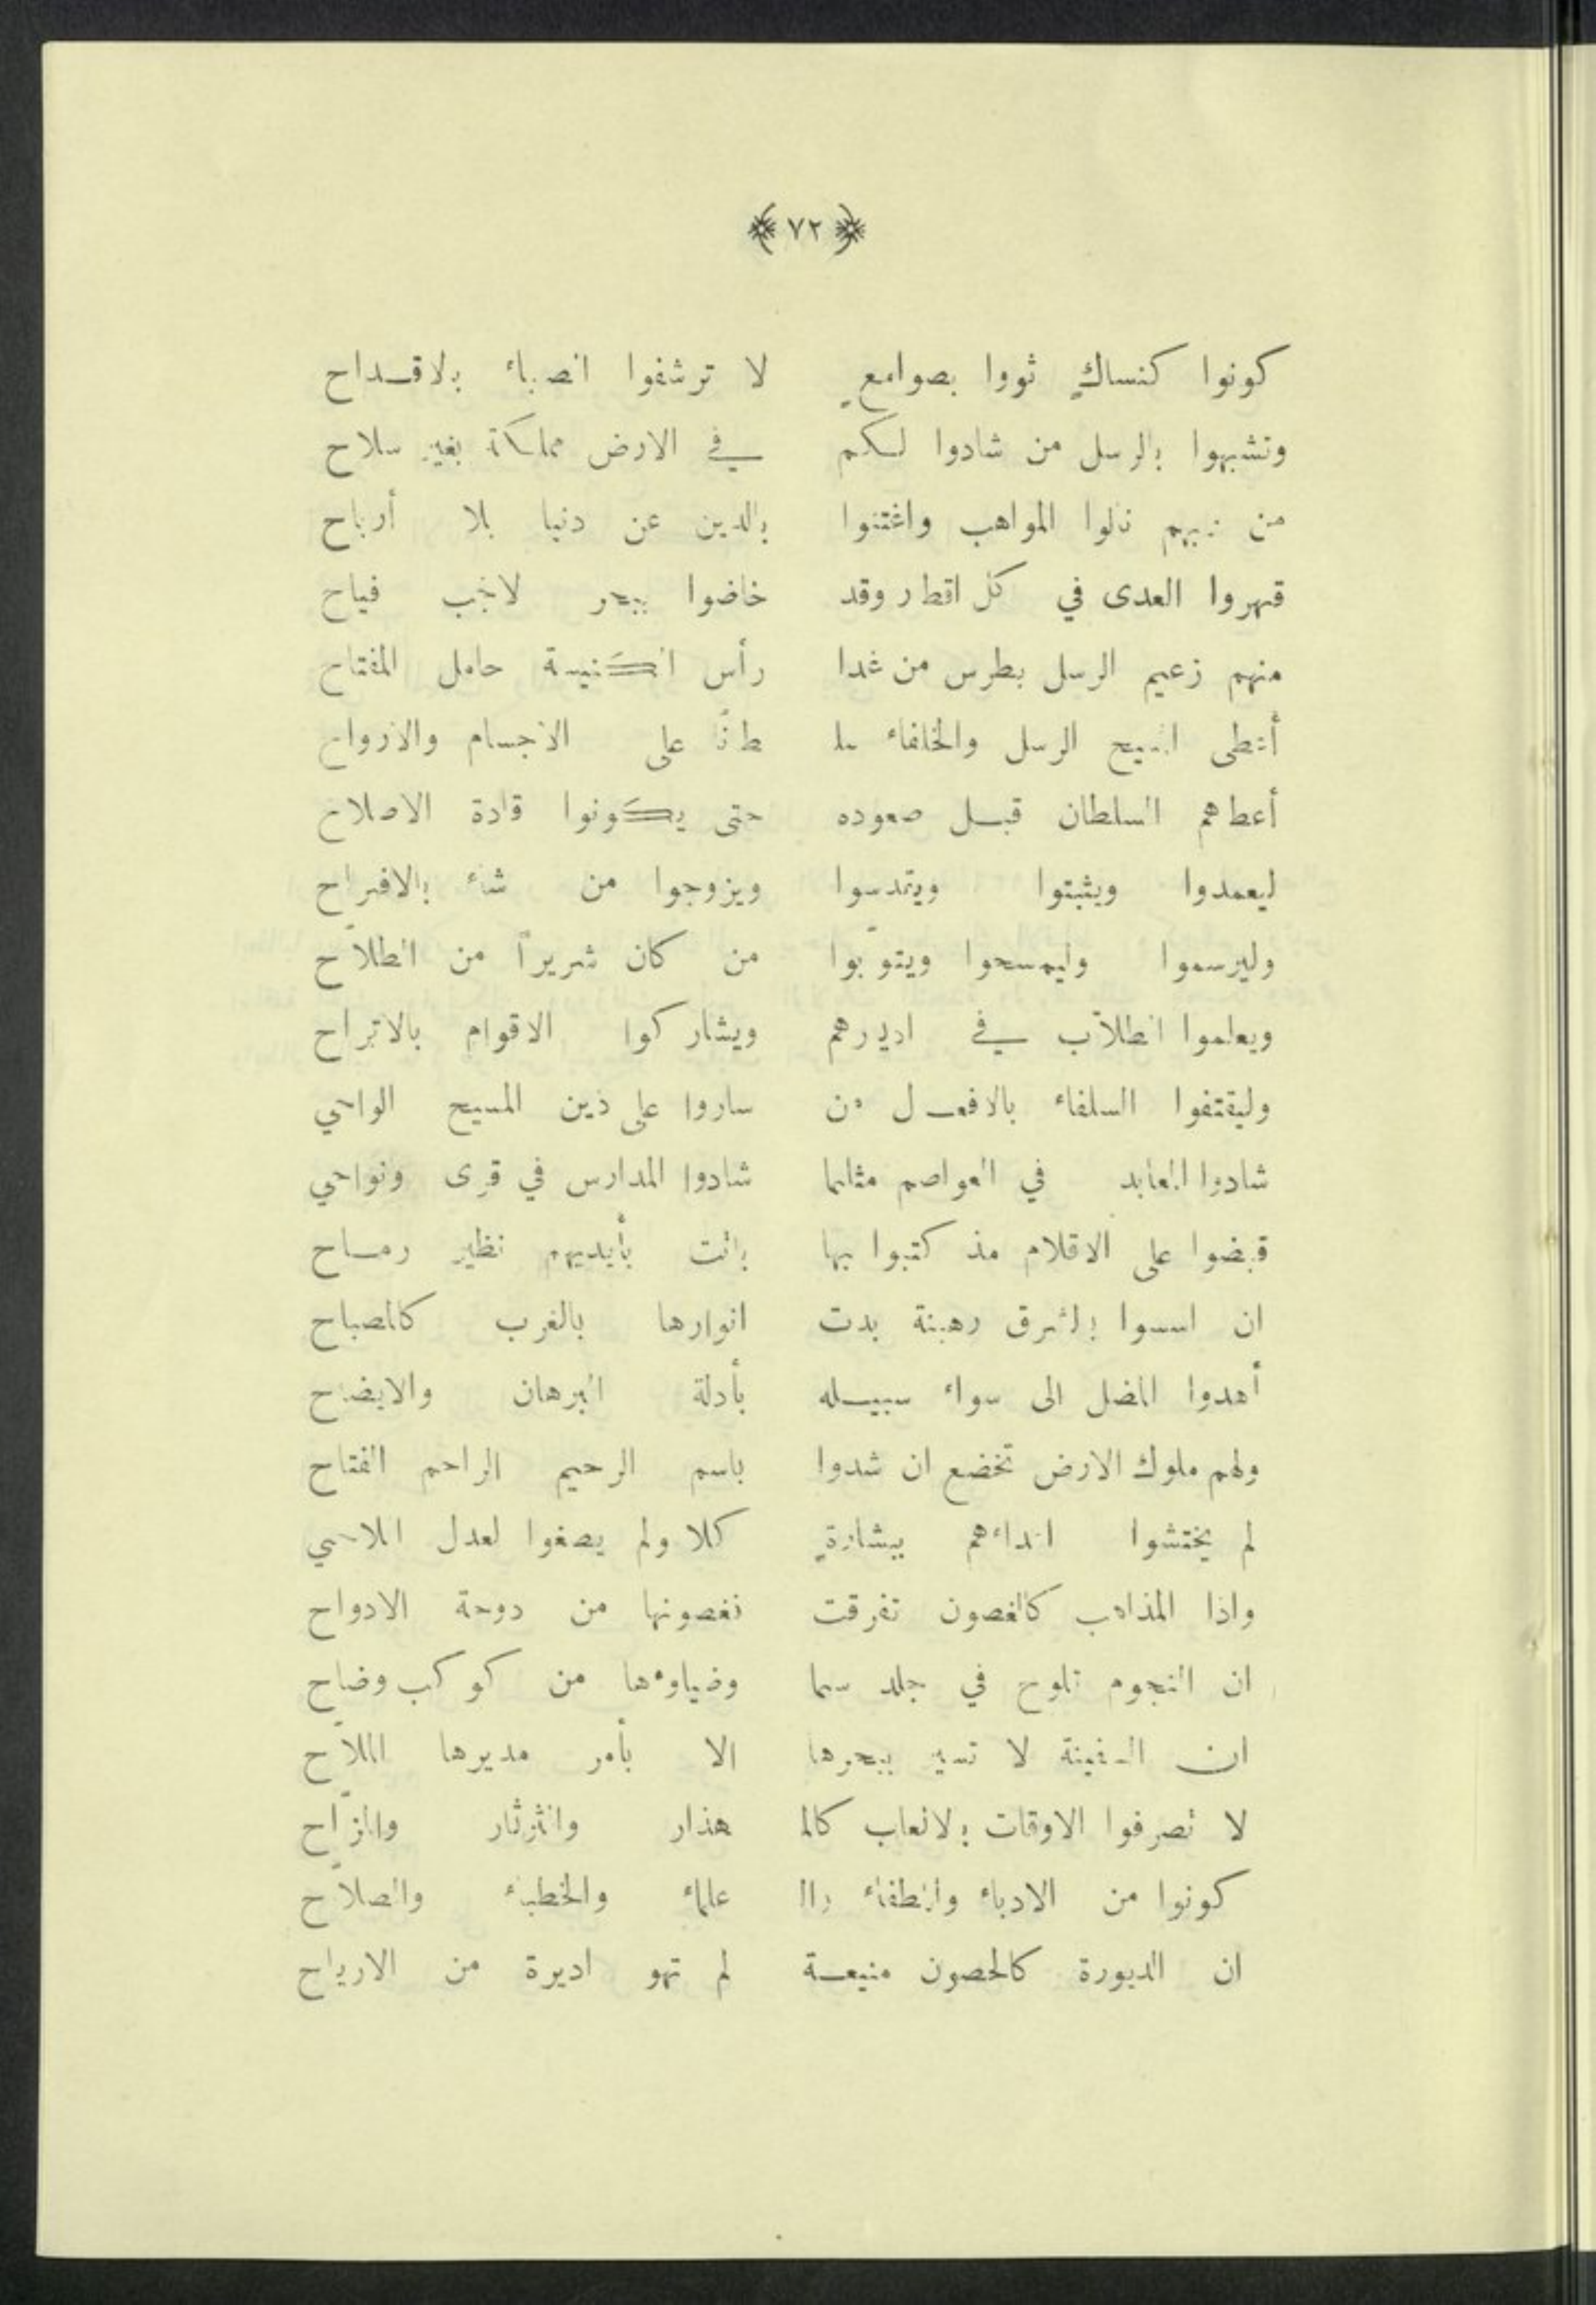 ﴿ ٧٢ ﴾
كونوا كنساكٍ ثووا بصوامعٍ لا ترشفوا الصهباء بالاقداح
وتشبهوا بالرسل من شادوا لكم في الارض مملكة بغير سلاح
من ربهم نالوا المواهب واغتنوا بالدين عن دنيا بلا أرباح
قهروا العدى في كل اقطار وقد خاضوا ببحر لاجب فياح
منهم زعيم الرسل بطرس من غدا رأس الكنيسة حامل المفتاح
أعطى المسيح الرسل والخلفاء سلـ ـطانًا على الاجسام والارواح
أعطاهم السلطان قبل صعوده حتى يكونوا قادة الاصلاح
ليعمدوا ويثبتوا ويقدسوا ويزوجوا من شاء بالافراح
وليرسموا وليمسحوا ويتوّبوا من كان شريراً من الطلاّح
ويعلموا الطلاّب في اديرهم ويشاركوا الاقوام بالاتراح
وليقتفوا السلفاء بالافعال من ساروا على دين المسيح الواحي
شادوا المعابد في العواصم مثلما شادوا المدارس في قرى ونواحي
قبضوا على الاقلام مذ كتبوا بها باتت بأيديهم نظير رماح
ان اسسوا بالشرق رهبنة بدت انوارها بالغرب كالمصباح
أهدوا المضل الى سواء سبيله بأدلة البرهان والايضاح
ولهم ملوك الارض تخضع ان شدوا باسم الرحيم الراحم الفتاح
لم يختشوا اعداءهم ببشارةٍ كلا ولم يصغوا لعدل اللاحي
واذا المذاهب كالغصون تفرقت فغصونها من دوحة الادواح
ان النجوم تلوح في جلد سما وضياوءها من كوكب وضاح
ان السفينة لا تسير ببحرها الا بأمر مديرها الملاّح
لا تصرفوا الاوقات بالالعاب كالـ هذار والثرثار والمزّاح
كونوا من الادباء واللطفاء والـ علماء والخطباء والصلاّح
ان الديورة كالحصون منيعة لم تهو اديرة من الارياح